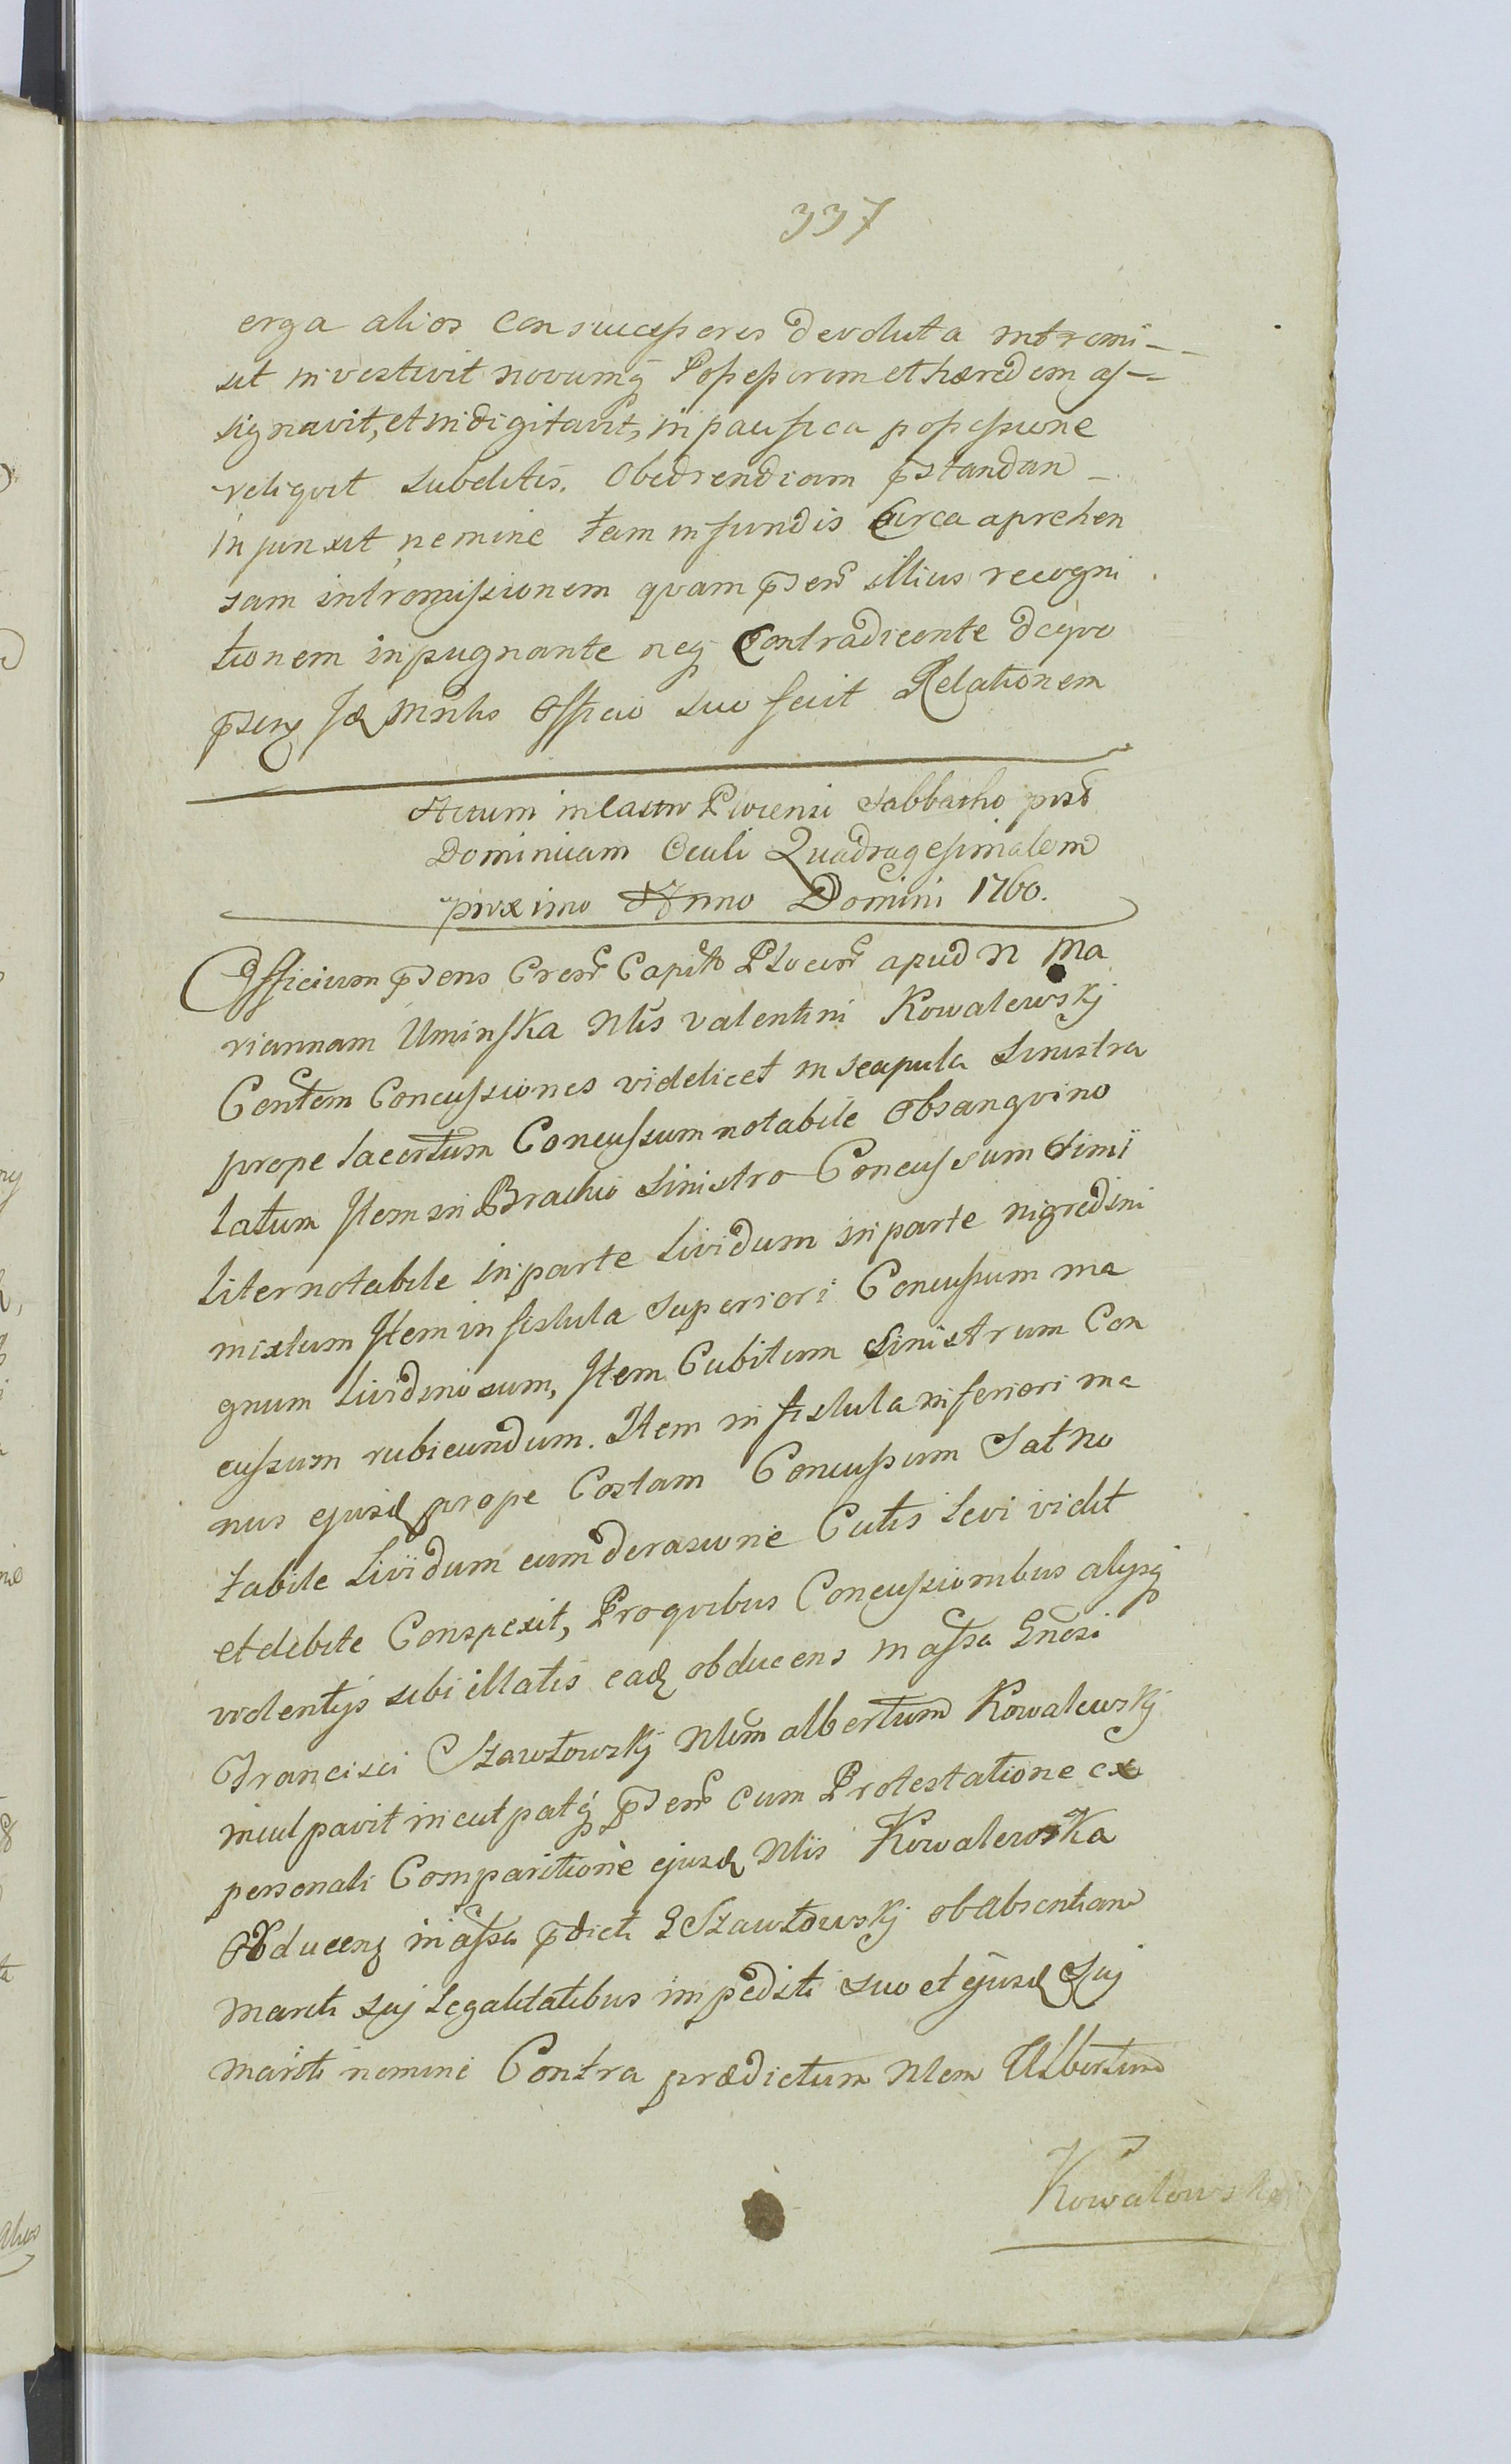 337
erga alios consuccessores devoluta intromi-
sit investivit novumq̃ Possessorem et hæredem as-
signavit, et indigitavit, in paci fica possessione
reliqvit subditis. Obediendiam p̃standan
injunxit nemine tam in fundis Circa aprehen
sam intromissionem qvam p̃sen̄ illius recogni
tionem inpugnante neq̃ Contradicente deqvo
p̃senq̃ Id̨ Minlis Officio suo fecit Relationem
Actum in Castro Plocensi Sabbatho post
Dominicam Oculi Quadragesimalem
proximo Anno Domini 1760.
Officium p̃sens Cresn̄ Capitn̄ Plocen̄ apud N Ma
riannam Uminska Nlis Valentini Kowalewskj
Contem Concussiones videlicet in scapula Sinistra
prope lacertum Concussum notabile Obsangvino
latum Item in Brachio Sinistro Concussum Simi
liter notabile in parte lividum in parte nigredini
mixtum Item in fistula Superiori Concussum ma
gnum lividinosum, Item Cubitum Sinistrum Con
cussum rubicundum. Item in fistula inferiori ma
nus ejusd̨ prope Costam Concussum Sat no
tabile Lividum cum derasione Cutis levi vidit
et debite Conspexit, Pro qvibus Concussionibus alijsq̃
violentijs sibi illatis ead̨ obducens in assa Gnosi
Francisci Szawłowskj Nlem albertum Kowalewskj
inculpavit inculpatq̃ p̃sen̄ cum Protestatione ex
personali Comparitione ejusd̨ Nlis Kowalewska
Obducenq̃ in assa p̃dicti G Szawłowskj ob absentiam
mariti suj Legalitatibus impediti suo et ejusd̨ Suj
mariti nomine Contra prædictum Nlem Albertum
Kowalewski